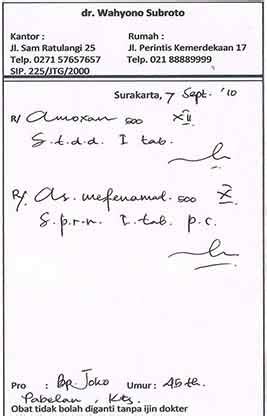 dr. Wahyono Subroto
Kantor : Rumah :
Jl. Sam Ratulangi 25 Jl. Perintis Kemerdekaan 17
Telp. 0271 57657657 Telp. 021 88889999
SIP. 225/JTG/2000
Surakarta, 7 Sept. '10
R/ Amoxan 500 XII
S. t. d. d. I tab.
R/. As. mefenamat. 500 X
S. p. r. n. I. tab. p. c.
Pro : Bp. Joko Umur : 45 th.
Pabelan, Kts.
Obat tidak bolah diganti tanpa ijin dokter